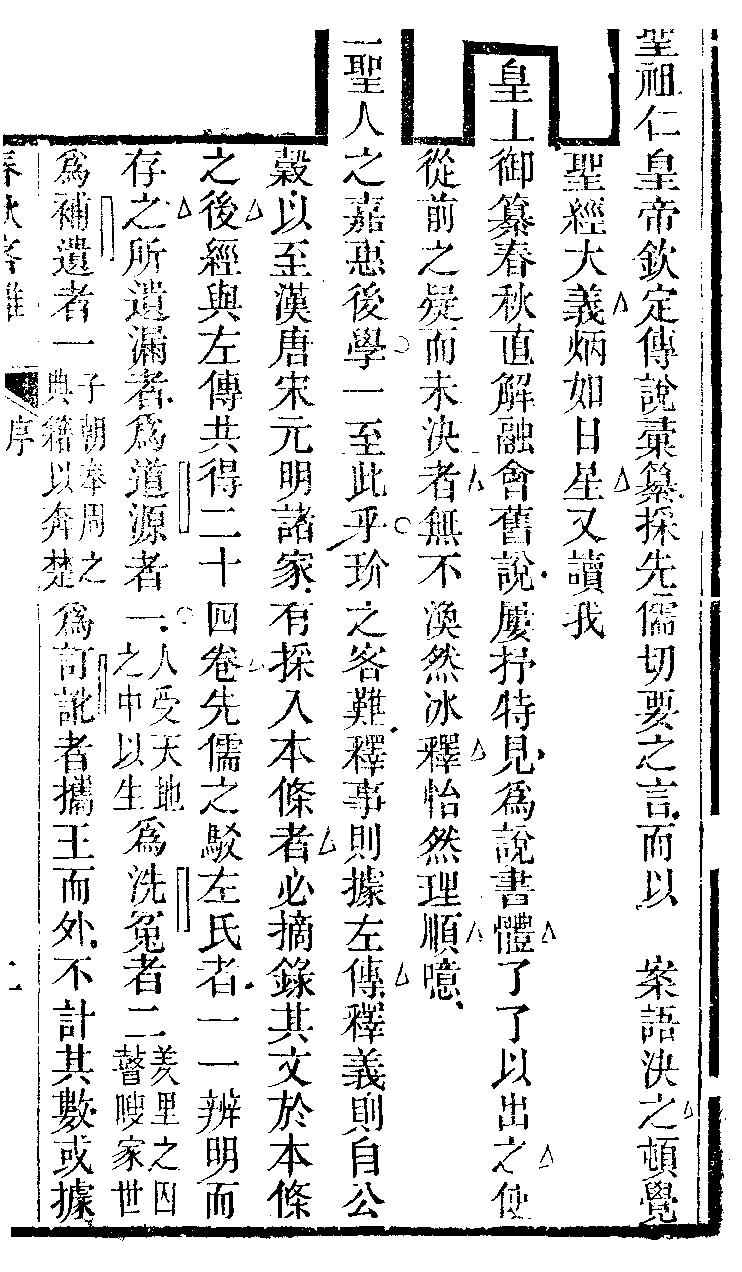 聖祖仁皇帝欽定傳說彙纂採先儒切要之言而以 案語決之頓覺
聖經大義炳如日星又讀我
皇上御纂春秋直解融會舊說屢抒特見爲說書體了了以出之使
從前之疑而未決者無不渙然冰釋怡然理順噫
二聖人之嘉惠後學一至此乎玠之客難釋事則據左傳釋義則自公
穀以至漢唐宋元明諸家有採入本條者必摘錄其文於本條
之後經與左傳共得二十四卷先儒之駁左氏者一一辨明而
存之所遺漏者爲道源者一人受天地之中以生爲洗冤者二羑里之囚瞽瞍家世
爲補遺者一子朝奉周之典籍以奔楚爲訂訛者攜王而外不計其數或據
春秋客難 序 二